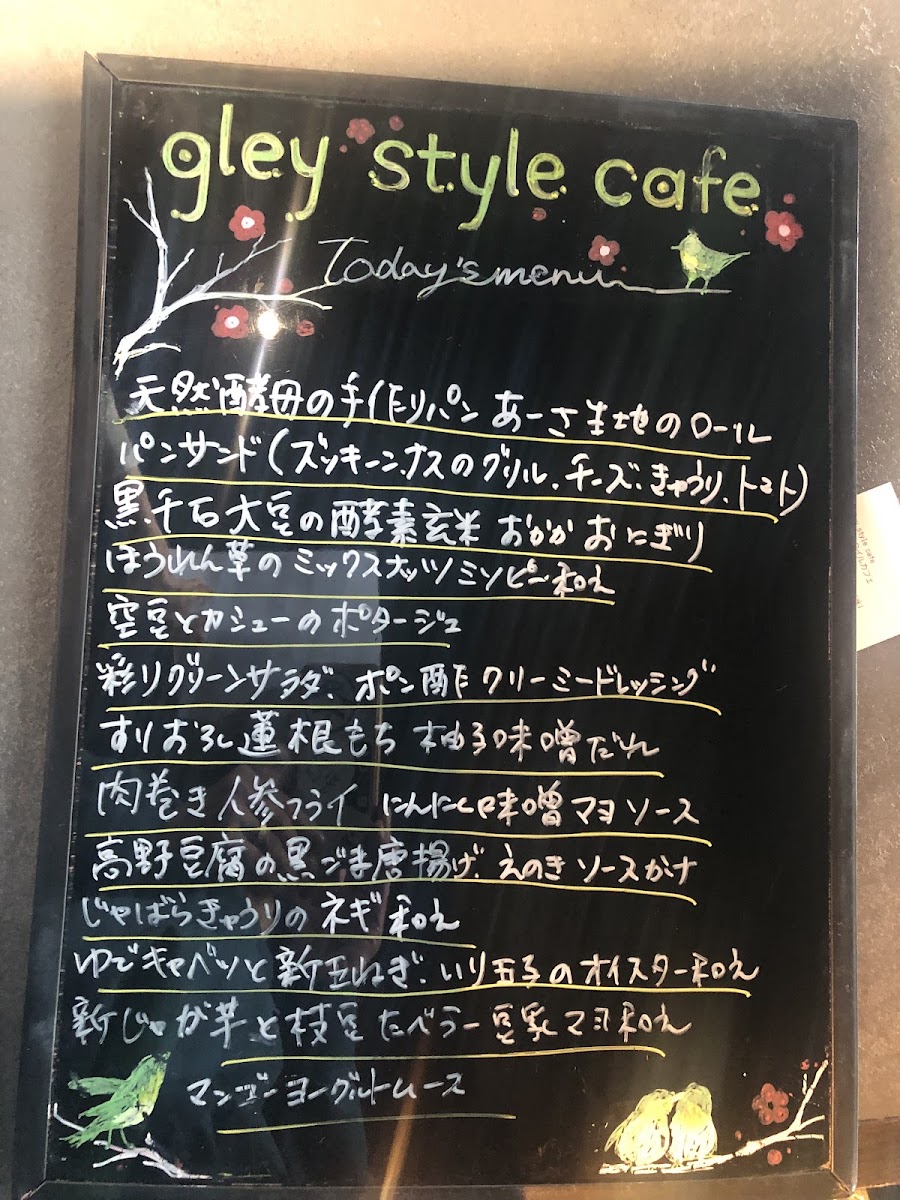 gley style cafe
Today's menu
天然酵母の手作りパン あーさ生地のロール
パンサンド(ズッキーニ、ナスのグリル、チーズ、きゅうり、トマト)
黒千石大豆の酵素玄米 おかか おにぎり
ほうれん草のミックスナッツミソピー和え
空豆とカシューのポタージュ
彩りグリーンサラダ、ポン酢クリーミードレッシング
すりおろし蓮根もち 柚子味噌だれ
肉巻き人参フライ にんにく味噌マヨソース
高野豆腐の黒ごま唐揚げ、えのきソースかけ
じゃばらきゅうりのネギ和え
ゆでキャベツと新玉ねぎ、いり玉子のオイスター和え
新じゃが芋と枝豆たべラー豆乳マヨ和え
マンゴーヨーグルトムース
style cafe